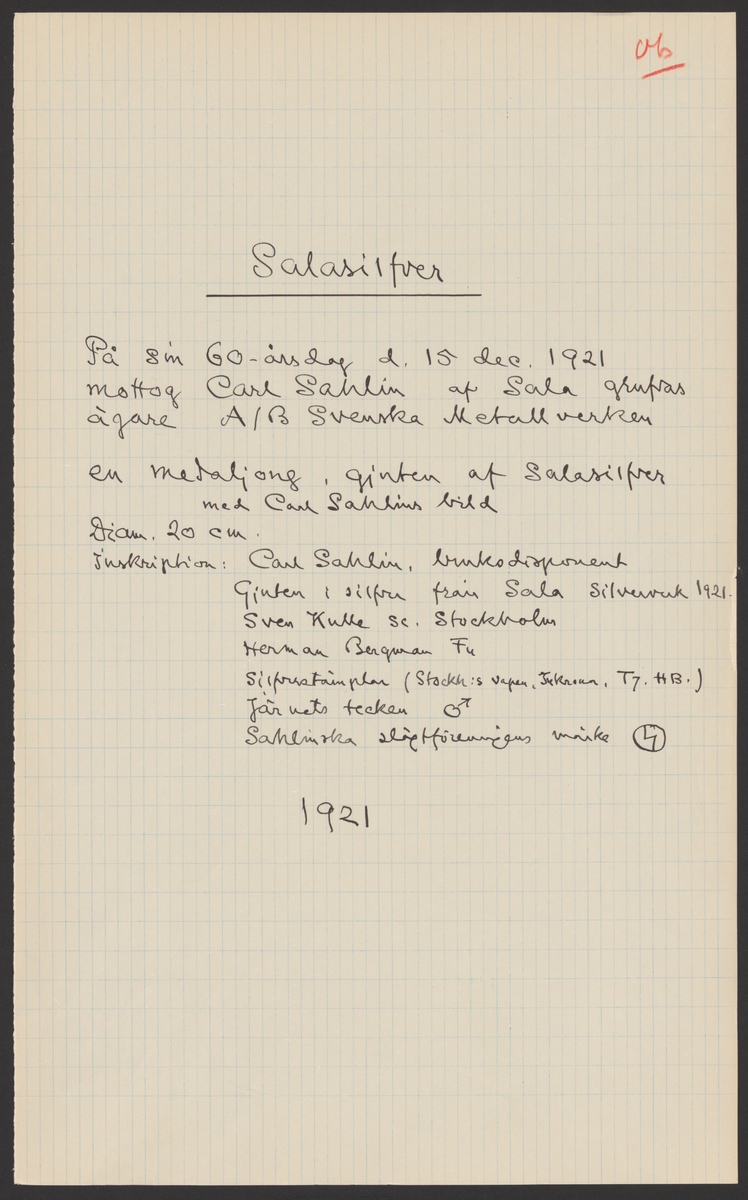 Ob
Salasilfver
På sin 60-årsdag d. 15 dec. 1921
mottog Carl Sahlin af Sala grufvas
ägare A/B Svenska Metallverken
en medaljong, gjuten af Salasilfver
med Carl Sahlins bild
Diam. 20 cm.
Inskription: Carl Sahlin, bruksdisponent
Gjuten i silfver från Sala Silververk 1921.
Sven Kulle sc. Stockholm
Herman Bergman Fu
Silfverstämplar (Stockh:s vapen, Trekronor, T7. HB.)
Järnets tecken ♂
Sahlinska släktföreningens märke
1921